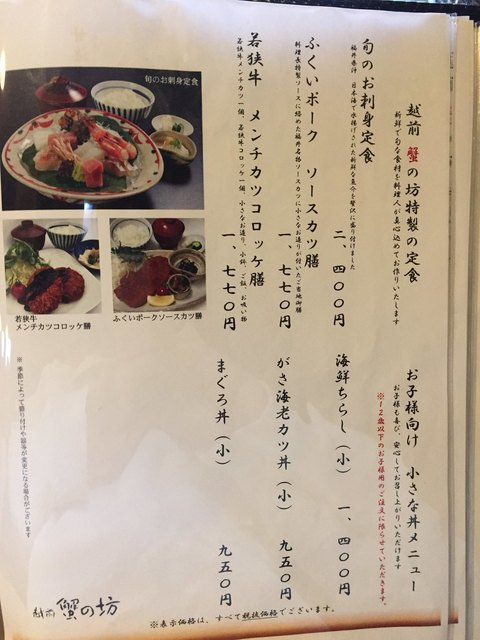 越前 蟹の坊特製の定食
新鮮で旬な食材を料理人が真心込めてお作りいたします
旬のお刺身定食
福井県沖 日本海で水揚げされた新鮮な魚介を贅沢に盛り付けました
二、四〇〇円
ふくいポーク ソースカツ膳
料理長特製ソースに絡めた福井名物ソースカツに小さなお造りが付いたご当地御膳
一、七七〇円
若狭牛 メンチカツコロッケ膳
若狭牛メンチカツ一個、若狭牛コロッケ一個、小さなお造り、小鉢、ご飯、お吸い物
一、七七〇円
旬のお刺身定食
若狭牛
メンチカツコロッケ膳
ふくいポークソースカツ膳
お子様向け 小さな丼メニュー
お子様も喜び、安心してお召し上がりいただけます
※12歳以下のお子様用のご注文に限らせていただきます。
海鮮ちらし(小) 一、四〇〇円
がさ海老カツ丼(小) 九五〇円
まぐろ丼(小) 九五〇円
※ 季節によって盛り付けや器等が変更になる場合がございます
越前 蟹の坊
※表示価格は、すべて税抜価格でございます。